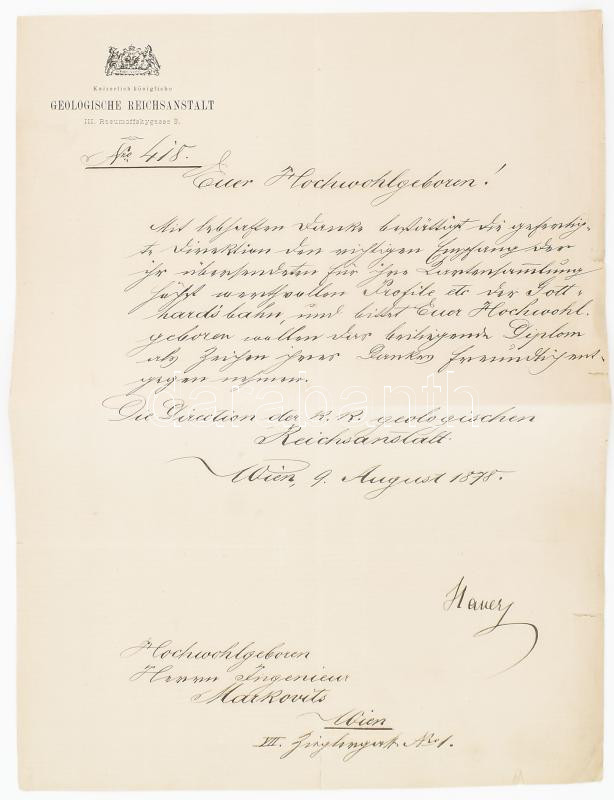 Kaiserlich königliche
GEOLOGISCHE REICHSANSTALT
III. Rasumoffskygasse 2.
Nro 418.
Euer Hochwohlgeboren!
Mit lebhaften Danke bestättigt die gefertig-
te Direktion den richtigen Empfang der
ihr übersendeten für ihre Kartensammlung
höchst werthvollen Profile etc der Gott-
hardsbahn, und bittet Euer Hochwohl-
geboren wollen das beiliegende Diplom
als Zeichen ihres Dankes freundlichst ent-
gegen nehmen.
Die Direction der k. k. geologischen
Reichsanstalt.
Wien, 9. August 1878.
Hauer
Hochwohlgeboren
Herrn Ingenieur
Markovits
Wien
VII. Zieglergasse No 1.
darabanth